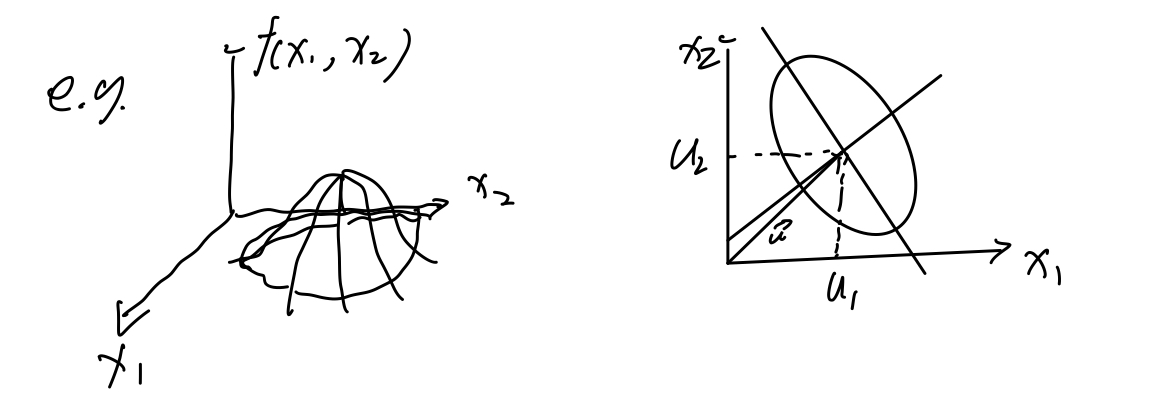 e.g.
f(x₁, x₂)
x₂
x₁
x₂
u₂
u⃗
u₁
x₁